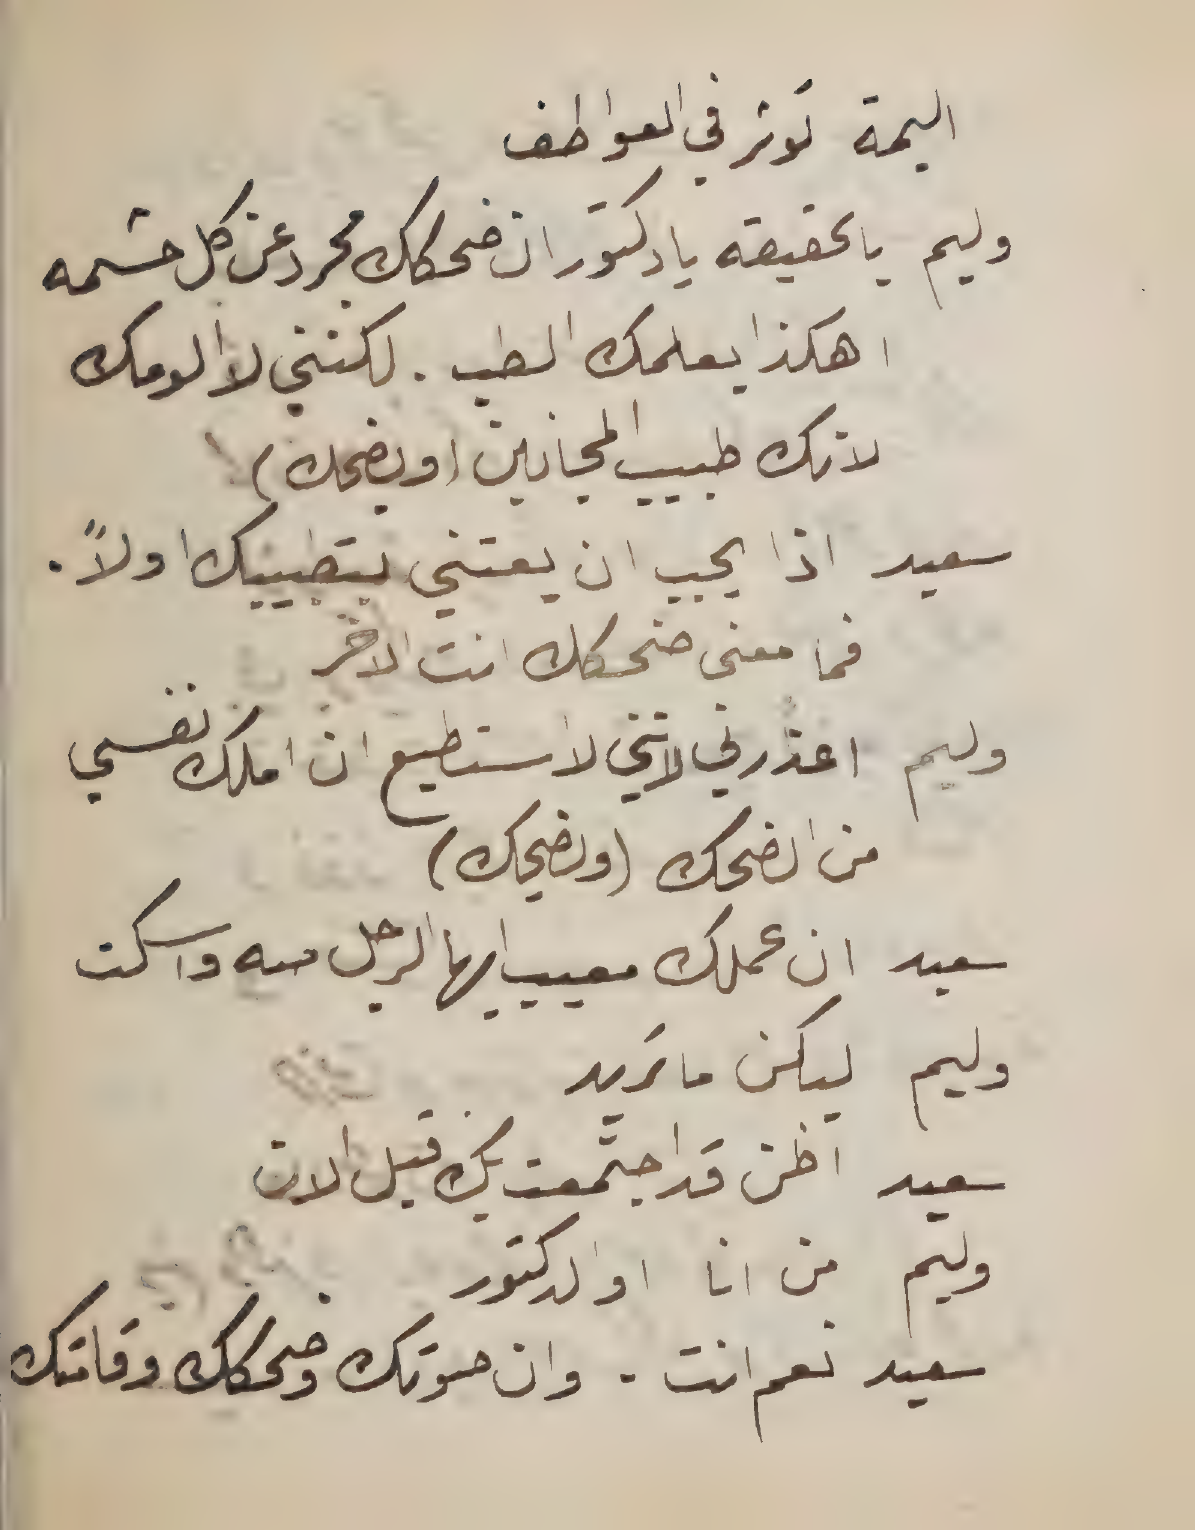 اليمة تؤثر في العواطف
وليم بالحقيقه يا دكتور ان ضحكك مجرد عن كل حشمه
اهكذا يعلمك الطب . لكنني لا ألومك
لانك طبيب المجانين (ويضحك)
سعيد اذا يجب ان يعتني بتطبيبك اولاً .
فما معنى ضحكك انت الاخر
وليم اعذرني لانني لا استطيع ان املك نفسي
من الضحك (ويضحك)
سعيد ان عملك معيب ايها الرجل صه واسكت
وليم ليكن ما تريد
سعيد اظن قد اجتمعت بك قبل الان
وليم من انا او الدكتور
سعيد نعم انت . وان صوتك وضحكك وقامتك